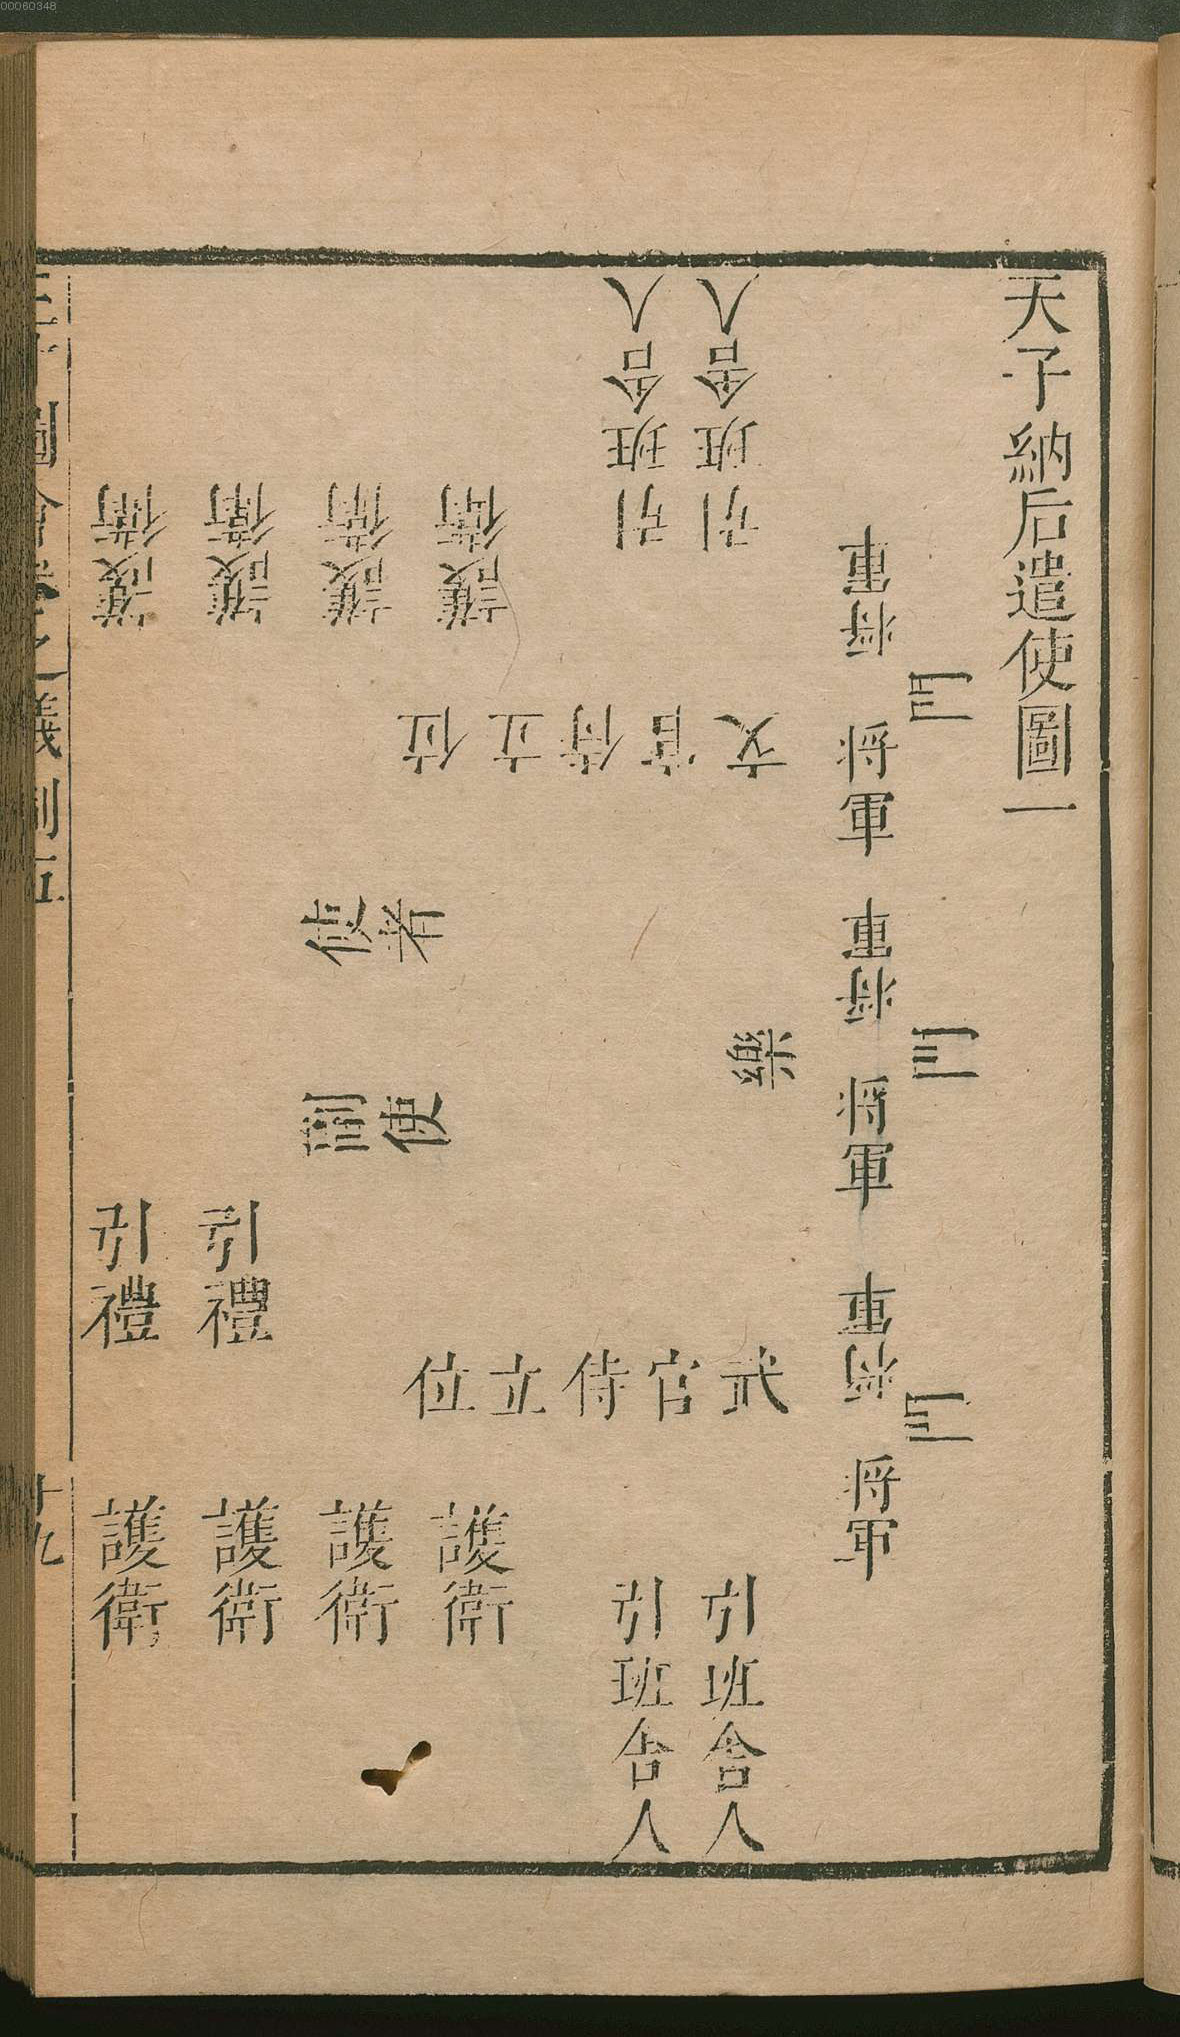 天子納后遣使圖一
門
門
門
將軍
將軍
將軍
將軍
將軍
將軍
引班舍人
引班舍人
文官侍立位
樂
武官侍立位
引班舍人
引班舍人
護衛
護衛
護衛
護衛
使者
副使
引禮
引禮
護衛
護衛
護衛
護衛
圖會
之
儀制五
十九
00060348